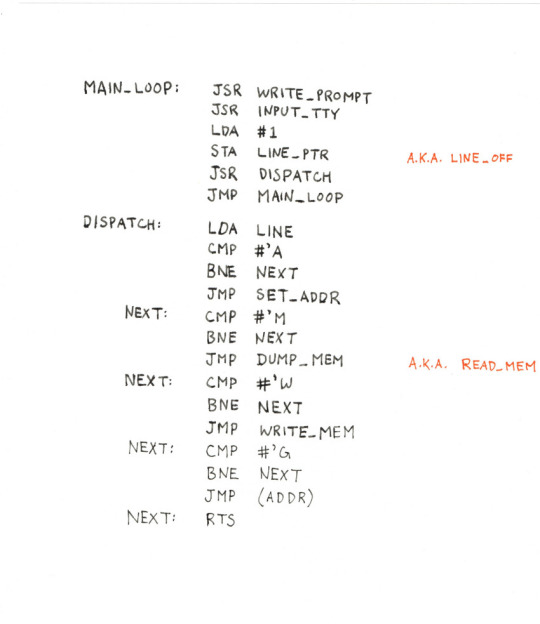 MAIN_LOOP: JSR WRITE_PROMPT
JSR INPUT_TTY
LDA #1
STA LINE_PTR A.K.A. LINE_OFF
JSR DISPATCH
JMP MAIN_LOOP
DISPATCH: LDA LINE
CMP #'A
BNE NEXT
JMP SET_ADDR
NEXT: CMP #'M
BNE NEXT
JMP DUMP_MEM A.K.A. READ_MEM
NEXT: CMP #'W
BNE NEXT
JMP WRITE_MEM
NEXT: CMP #'G
BNE NEXT
JMP (ADDR)
NEXT: RTS